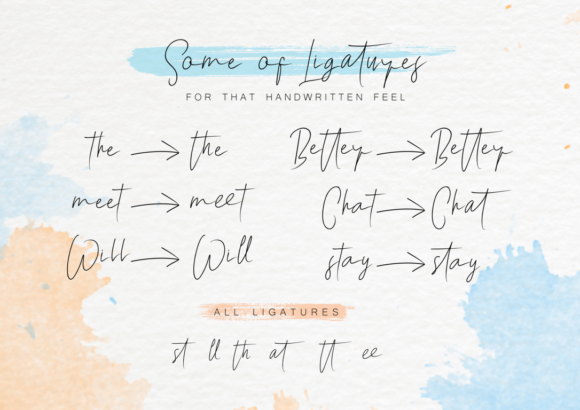 Some of Ligatures
FOR THAT HANDWRITTEN FEEL
the → the
Better → Better
meet → meet
Chat → Chat
Will → Will
stay → stay
ALL LIGATURES
st ll th at tt ee